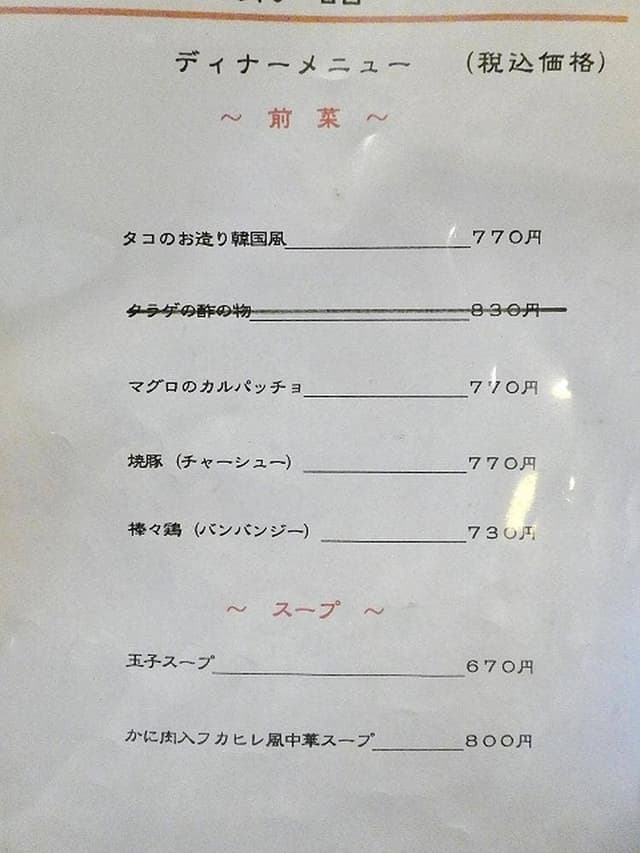 ディナーメニュー （税込価格）
～ 前 菜 ～
タコのお造り韓国風 ７７０円
タラゲの酢の物 ８３０円
マグロのカルパッチョ ７７０円
焼豚（チャーシュー） ７７０円
棒々鶏（バンバンジー） ７３０円
～ スープ ～
玉子スープ ６７０円
かに肉入フカヒレ風中華スープ ８００円